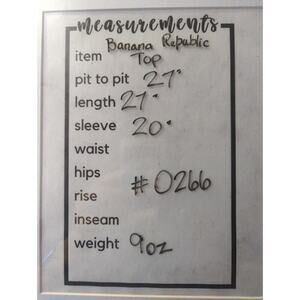 measurements
Banana Republic
item Top
pit to pit 27"
length 27"
sleeve 20"
waist
hips
#0266
rise
inseam
weight 9oz